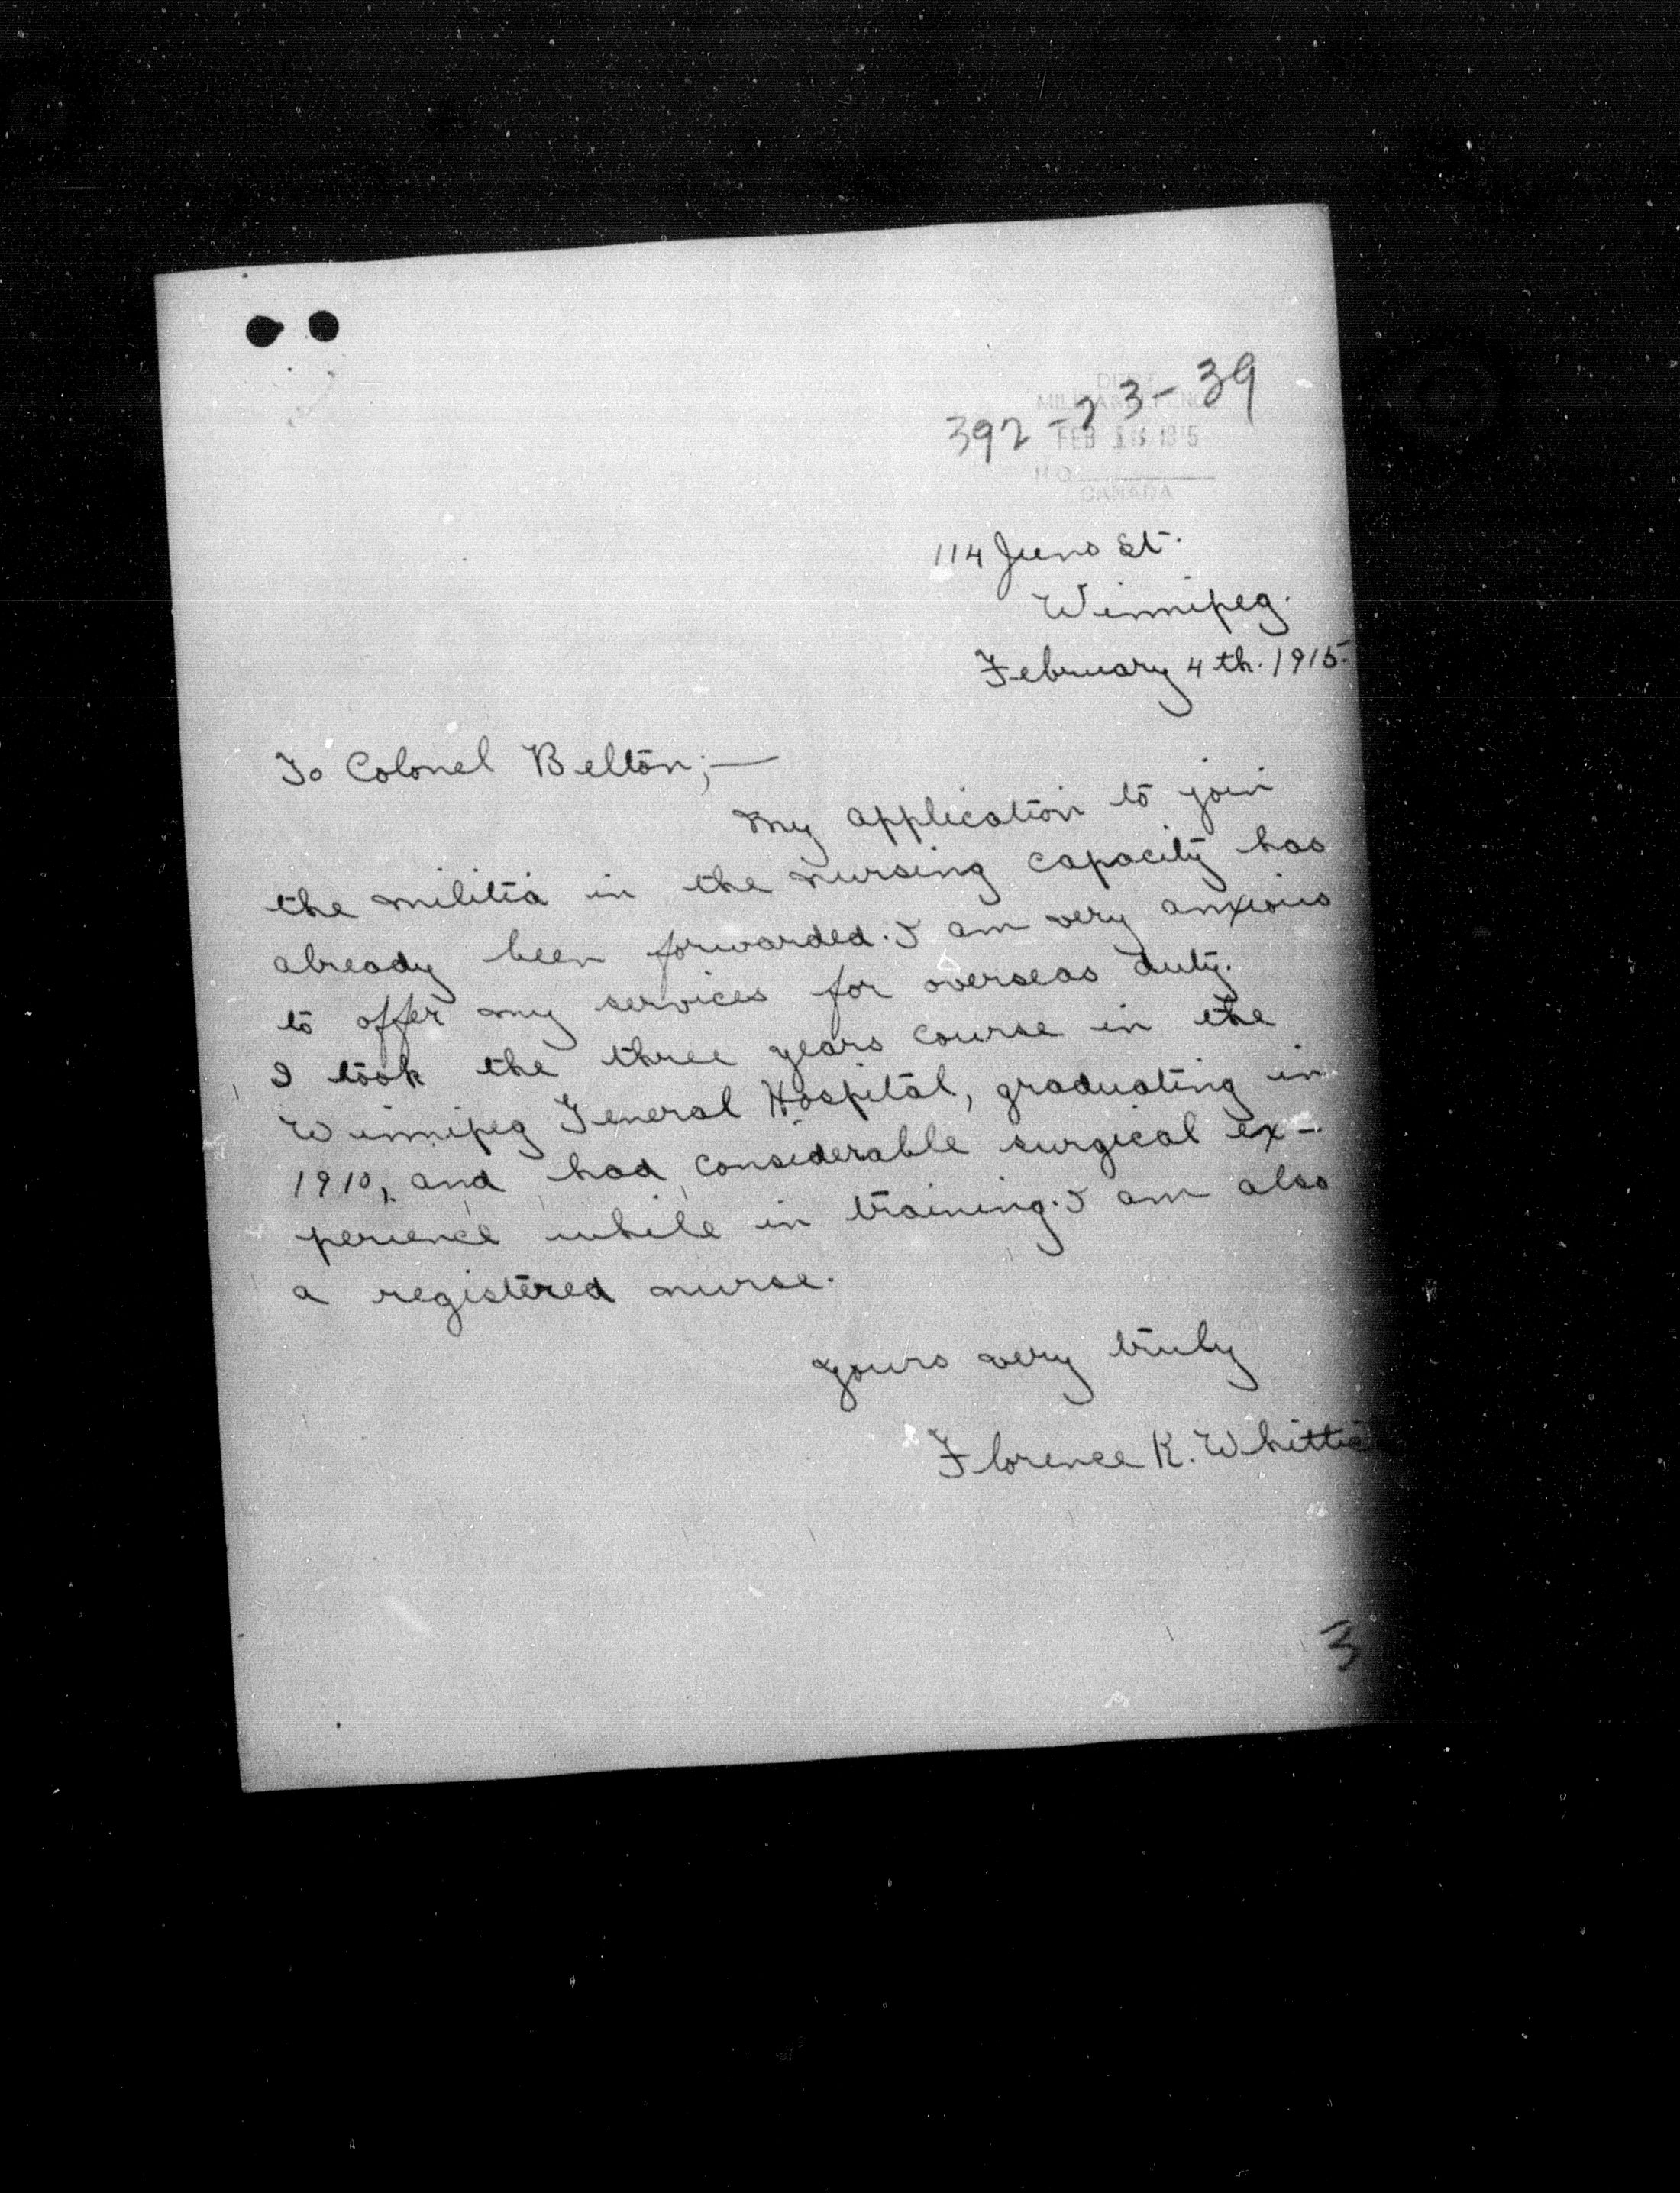 392-23-39
DEPT
FEB 1915
CANADA
114 Juno St.
Winnipeg.
February 4th. 1915.
To Colonel Belton;—
My application to join
the militia in the nursing capacity has
already been forwarded. I am very anxious
to offer my services for overseas duty.
I took the three years course in the
Winnipeg General Hospital, graduating in
1910, and had considerable surgical ex-
perience while in training. I am also
a registered nurse.
yours very truly
Florence K.
3